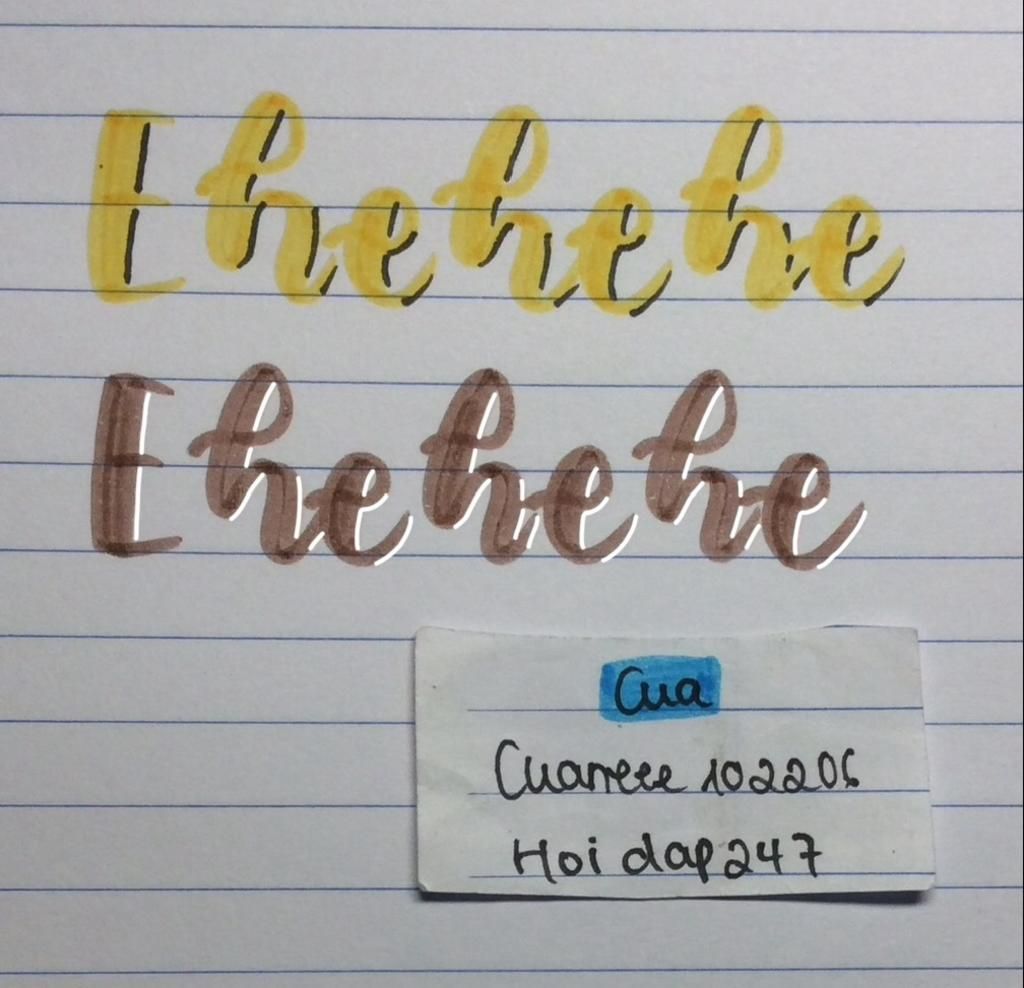 Ehehehe
Ehehehe
Cua
Cuarreee 102206
Hoi dap 247